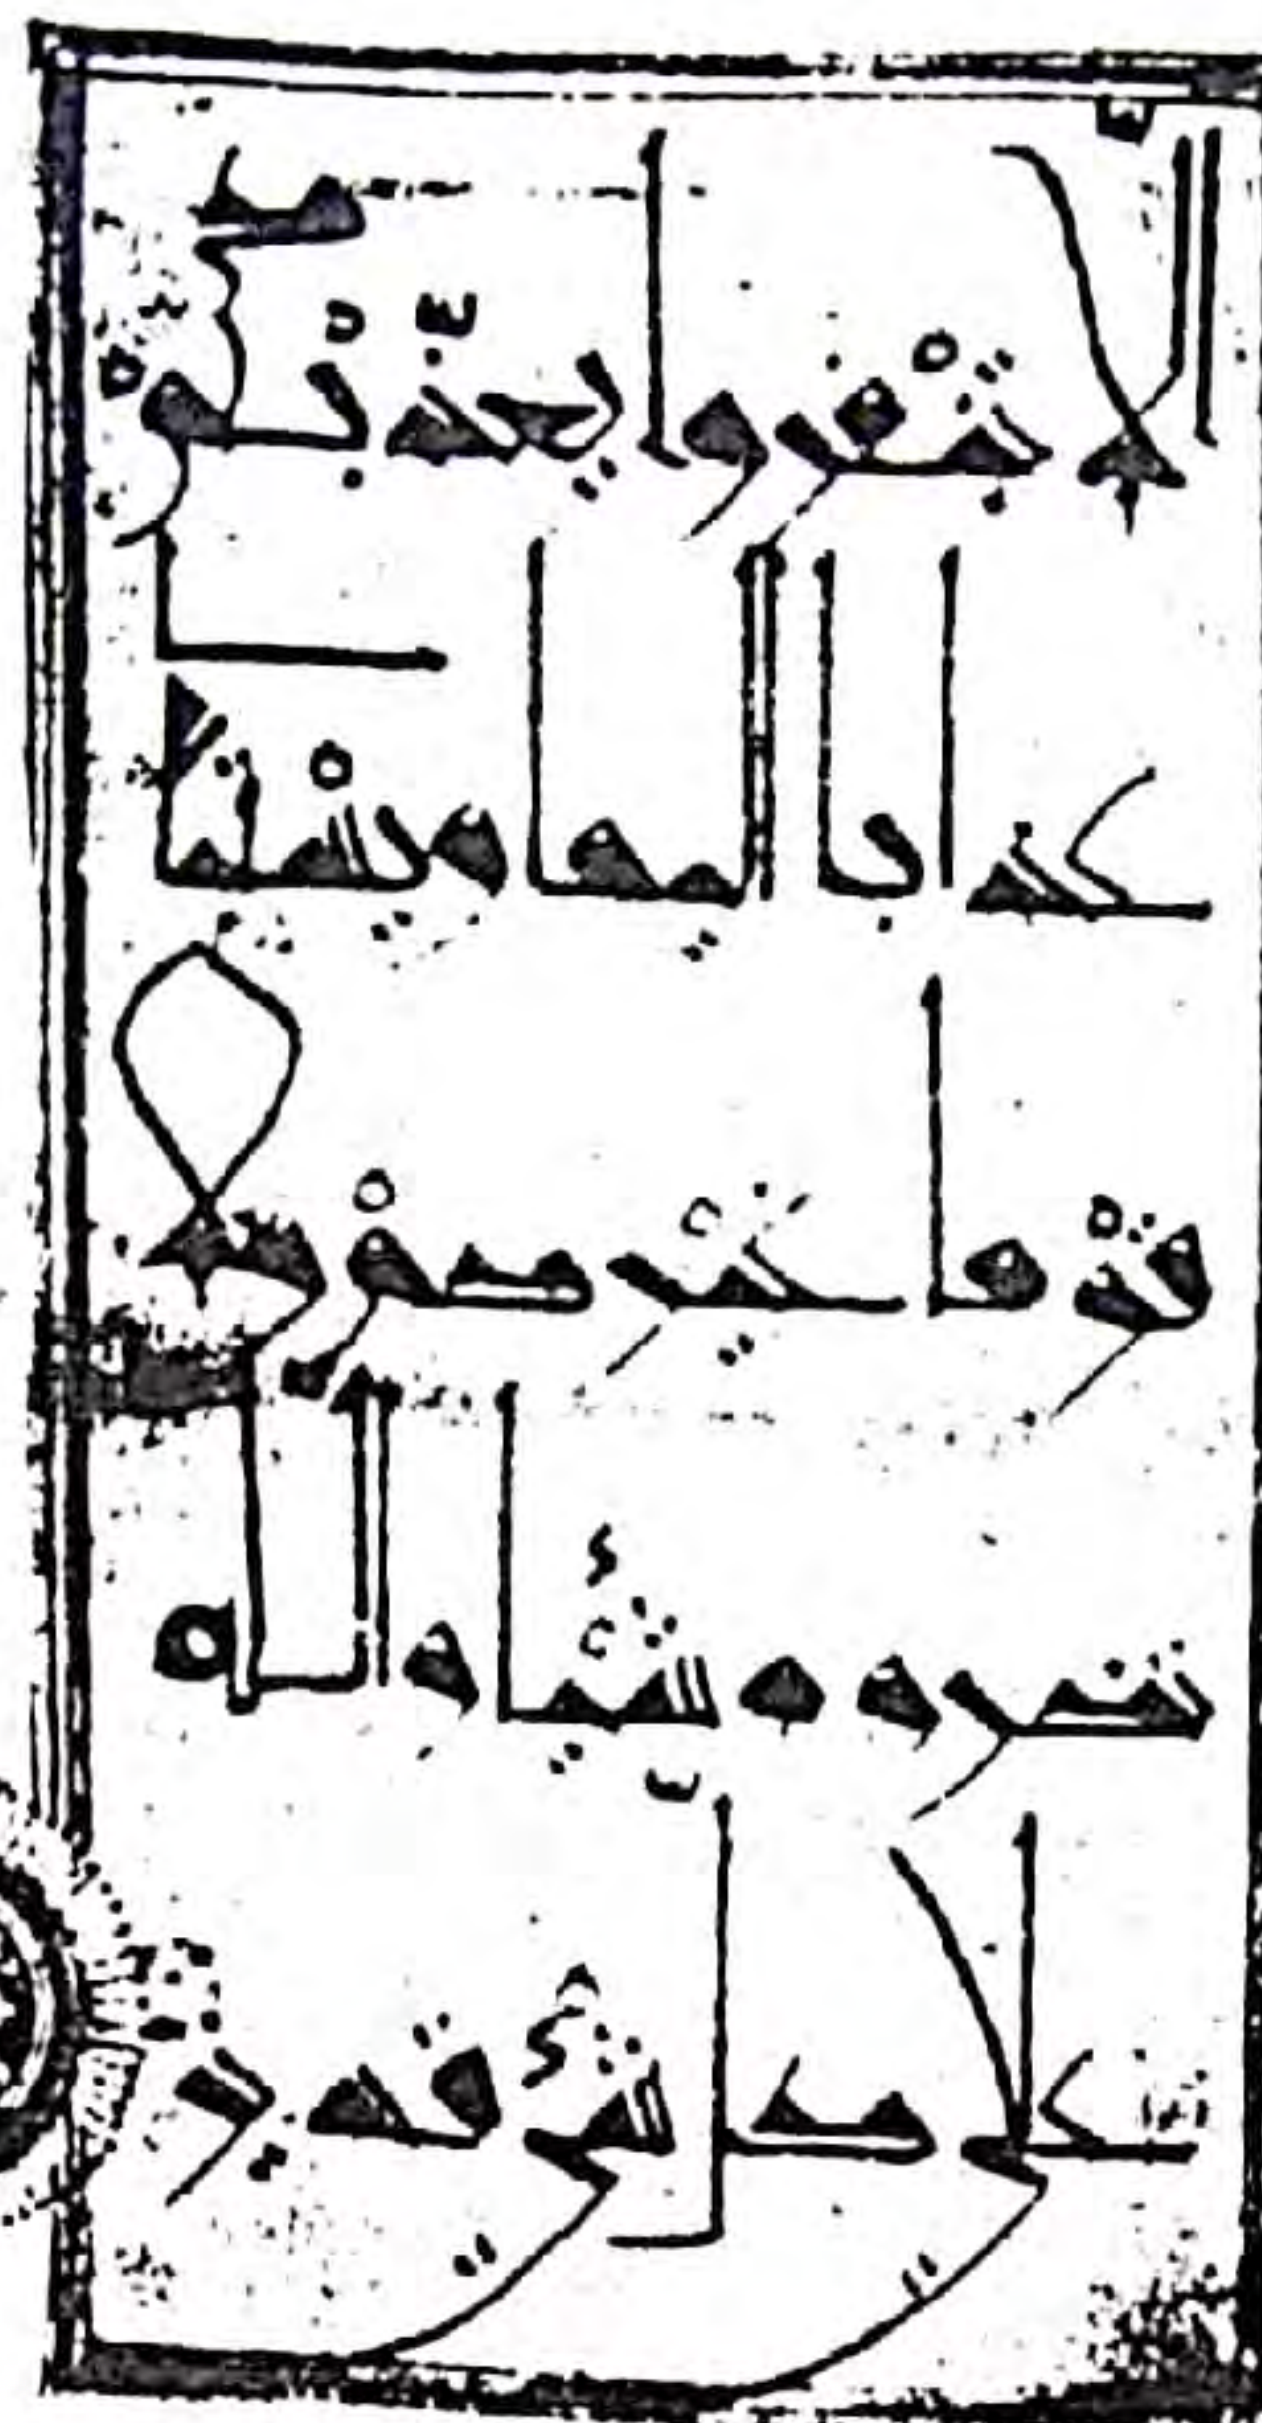 الا تنفروا يعذبكم
عذابا اليما ويستبد
ل قوما غيركم ولا
تضروه شيا والله
على كل شئ قدير